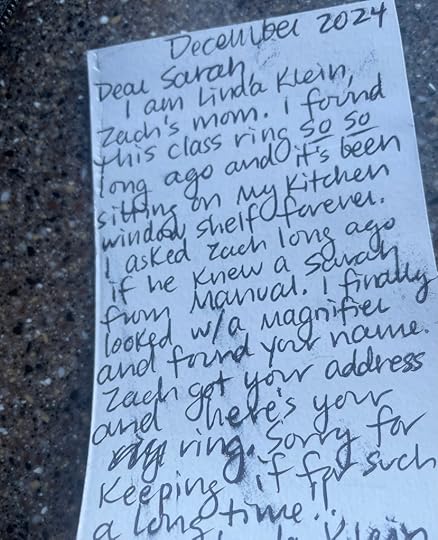 December 2024
Dear Sarah
I am Linda Klein,
Zach's mom. I found
this class ring so so
long ago and it's been
sitting on my kitchen
window shelf forever.
I asked Zach long ago
if he knew a Sarah
from Manual. I finally
looked w/a magnifier
and found your name.
Zach got your address
and here's your
ring. Sorry for
keeping it for such
a long time!!
Klein